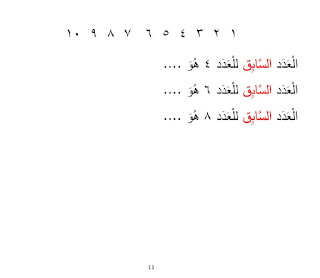 ١ ٢ ٣ ٤ ٥ ٦ ٧ ٨ ٩ ١٠
الْعَدَد السَّابِق للْعَدَد ٤ هُوَ ....
الْعَدَد السَّابِق للْعَدَد ٦ هُوَ ....
الْعَدَد السَّابِق للْعَدَد ٨ هُوَ ....
11